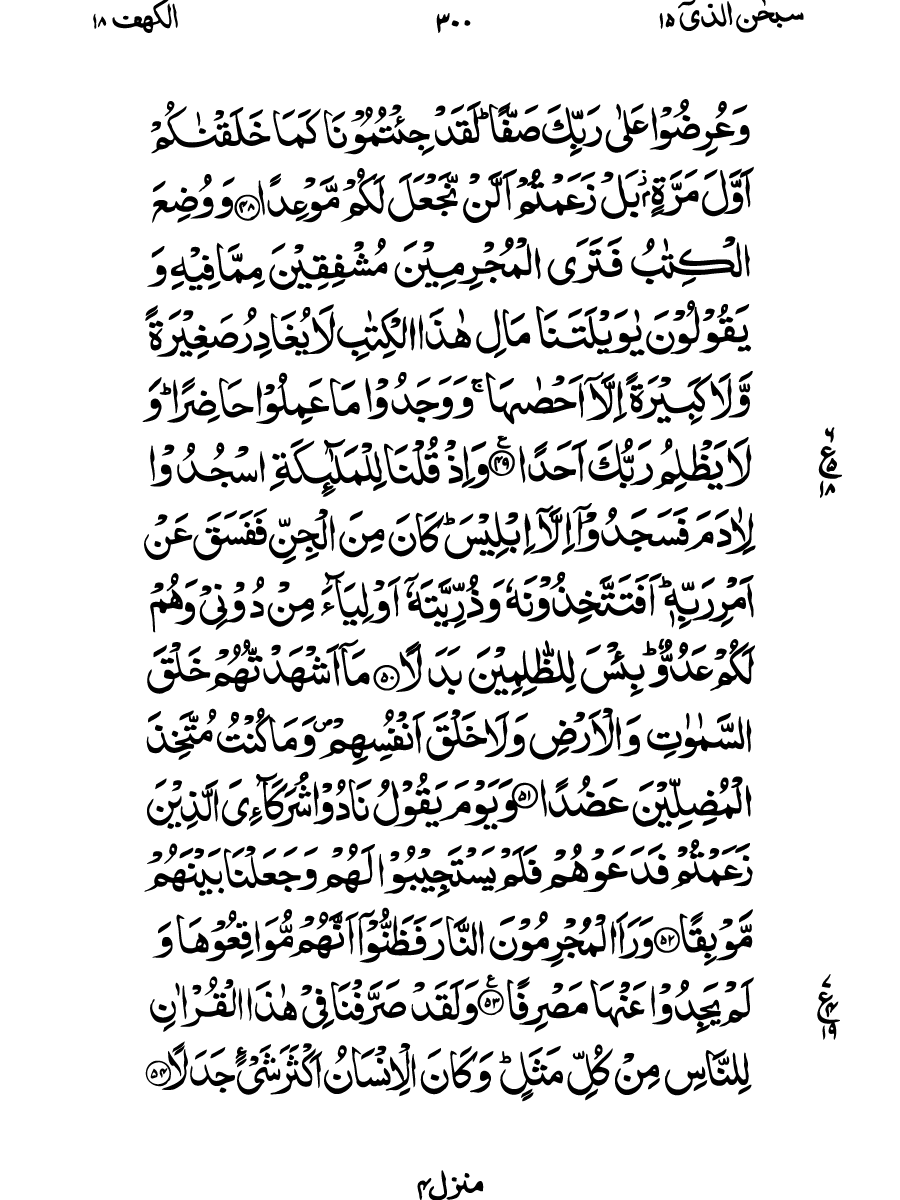 سبحٰن الذیٓ ۱۵ ۳۰۰ الکھف ۱۸
وَعُرِضُوْا عَلٰی رَبِّكَ صَفًّا ؕ لَقَدْ جِئْتُمُوْنَا كَمَا خَلَقْنٰكُمْ
اَوَّلَ مَرَّةٍۭ ؗ بَلْ زَعَمْتُمْ اَلَّنْ نَّجْعَلَ لَكُمْ مَّوْعِدًا ﴿۴۸﴾ وَ وُضِعَ
الْكِتٰبُ فَتَرَی الْمُجْرِمِیْنَ مُشْفِقِیْنَ مِمَّا فِیْهِ وَ
یَقُوْلُوْنَ یٰوَیْلَتَنَا مَالِ هٰذَا الْكِتٰبِ لَا یُغَادِرُ صَغِیْرَةً
وَّلَا كَبِیْرَةً اِلَّاۤ اَحْصٰىهَا ۚ وَ وَجَدُوْا مَا عَمِلُوْا حَاضِرًا ؕ وَ
لَا یَظْلِمُ رَبُّكَ اَحَدًا ﴿۴۹﴾ ع وَ اِذْ قُلْنَا لِلْمَلٰٓىِٕكَةِ اسْجُدُوْا
۶ ع ۵ ۱۸
لِاٰدَمَ فَسَجَدُوْۤا اِلَّاۤ اِبْلِیْسَ ؕ كَانَ مِنَ الْجِنِّ فَفَسَقَ عَنْ
اَمْرِ رَبِّهٖ ؕ اَفَتَتَّخِذُوْنَهٗ وَ ذُرِّیَّتَهٗۤ اَوْلِیَآءَ مِنْ دُوْنِیْ وَهُمْ
لَكُمْ عَدُوٌّ ؕ بِئْسَ لِلظّٰلِمِیْنَ بَدَلًا ﴿۵۰﴾ مَاۤ اَشْهَدْتُّهُمْ خَلْقَ
السَّمٰوٰتِ وَ الْاَرْضِ وَلَا خَلْقَ اَنْفُسِهِمْ ۪ وَمَا كُنْتُ مُتَّخِذَ
الْمُضِلِّیْنَ عَضُدًا ﴿۵۱﴾ وَیَوْمَ یَقُوْلُ نَادُوْا شُرَكَآءِیَ الَّذِیْنَ
زَعَمْتُمْ فَدَعَوْهُمْ فَلَمْ یَسْتَجِیْبُوْا لَهُمْ وَجَعَلْنَا بَیْنَهُمْ
مَّوْبِقًا ﴿۵۲﴾ وَرَاَ الْمُجْرِمُوْنَ النَّارَ فَظَنُّوْۤا اَنَّهُمْ مُّوَاقِعُوْهَا وَ
لَمْ یَجِدُوْا عَنْهَا مَصْرِفًا ﴿۵۳﴾ ع وَلَقَدْ صَرَّفْنَا فِیْ هٰذَا الْقُرْاٰنِ
۷ ع ۴ ۱۹
لِلنَّاسِ مِنْ كُلِّ مَثَلٍ ؕ وَكَانَ الْاِنْسَانُ اَكْثَرَ شَیْءٍ جَدَلًا ﴿۵۴﴾
منزل ۴